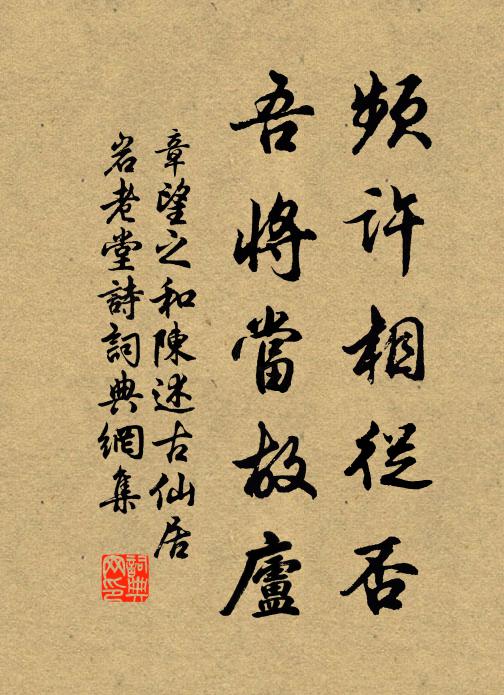 頻許相從否
吾將當故廬
章望之和陳述古仙居
岩老堂詩詞典網集
詞典网印